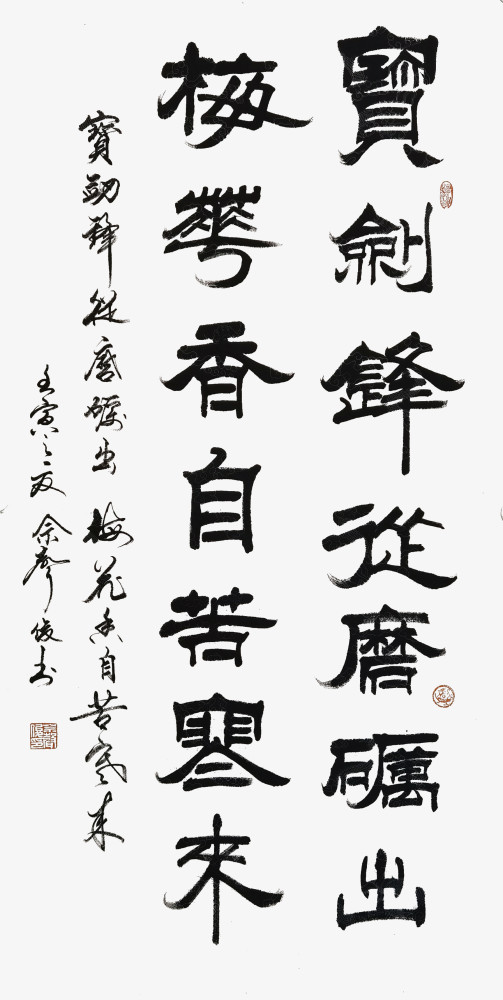 寶劍鋒從磨礪出
梅華香自苦寒來
寶劍鋒從磨礪出 梅花香自苦寒來
壬寅之夏 俊书